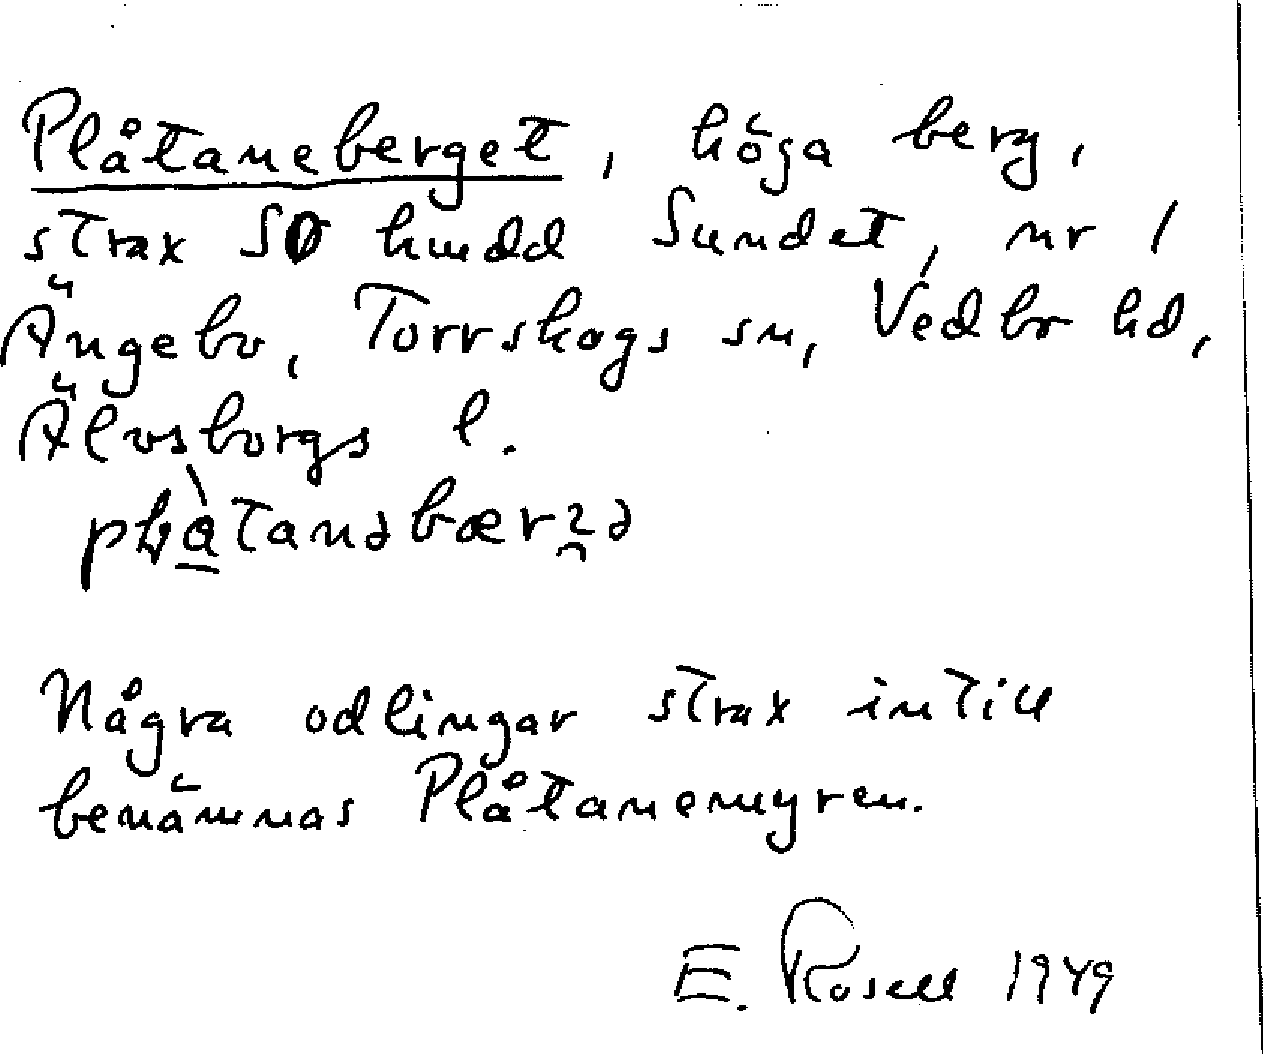 Plåtaneberget, höga berg,
strax SO hmdd Sundet, nr 1
Ängebo, Torrskogs sn, Vedbo hd,
Älvsborgs l.

Några odlingar strax intill
benämnas Plåtanemyren.
E. Rosell 1949